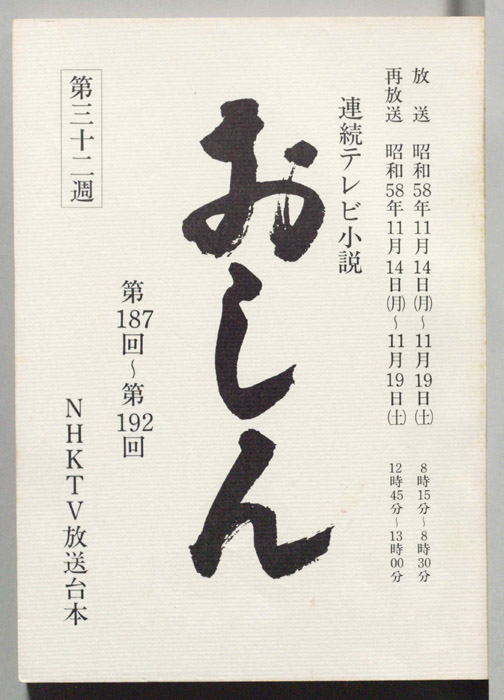 放送 昭和58年11月14日(月)〜11月19日(土) 8時15分〜8時30分
再放送 昭和58年11月14日(月)〜11月19日(土) 12時45分〜13時00分
連続テレビ小説
おしん
第187回〜第192回
第三十二週
NHKTV放送台本